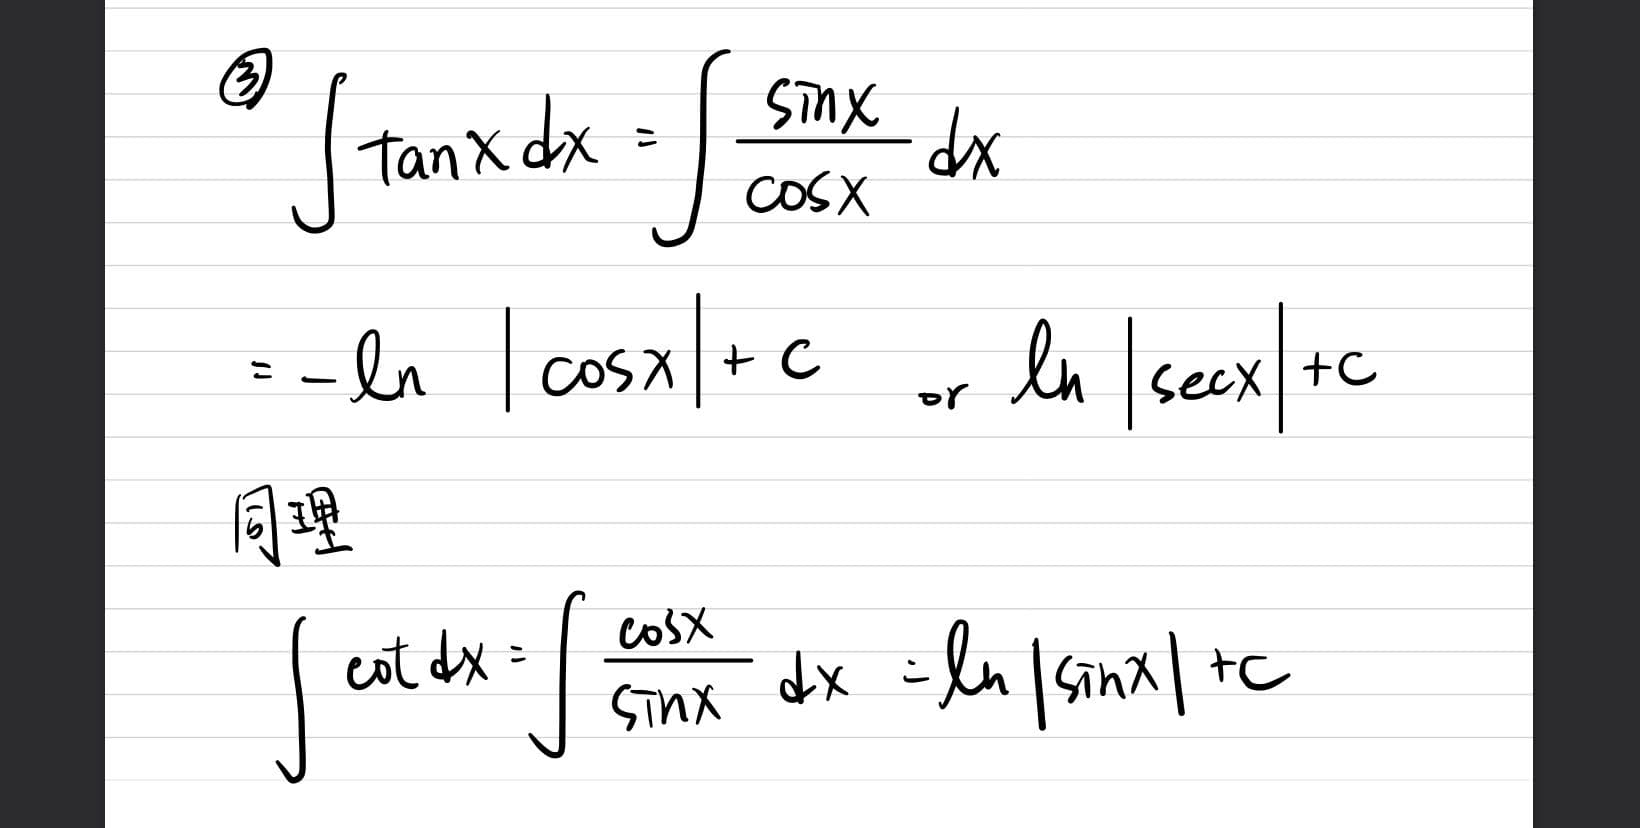 ③
∫ tanx dx = ∫ sinx/cosx dx
= -ln |cosx| + c or ln |secx| + c
同理
∫ cot dx = ∫ cosx/sinx dx = ln |sinx| + c